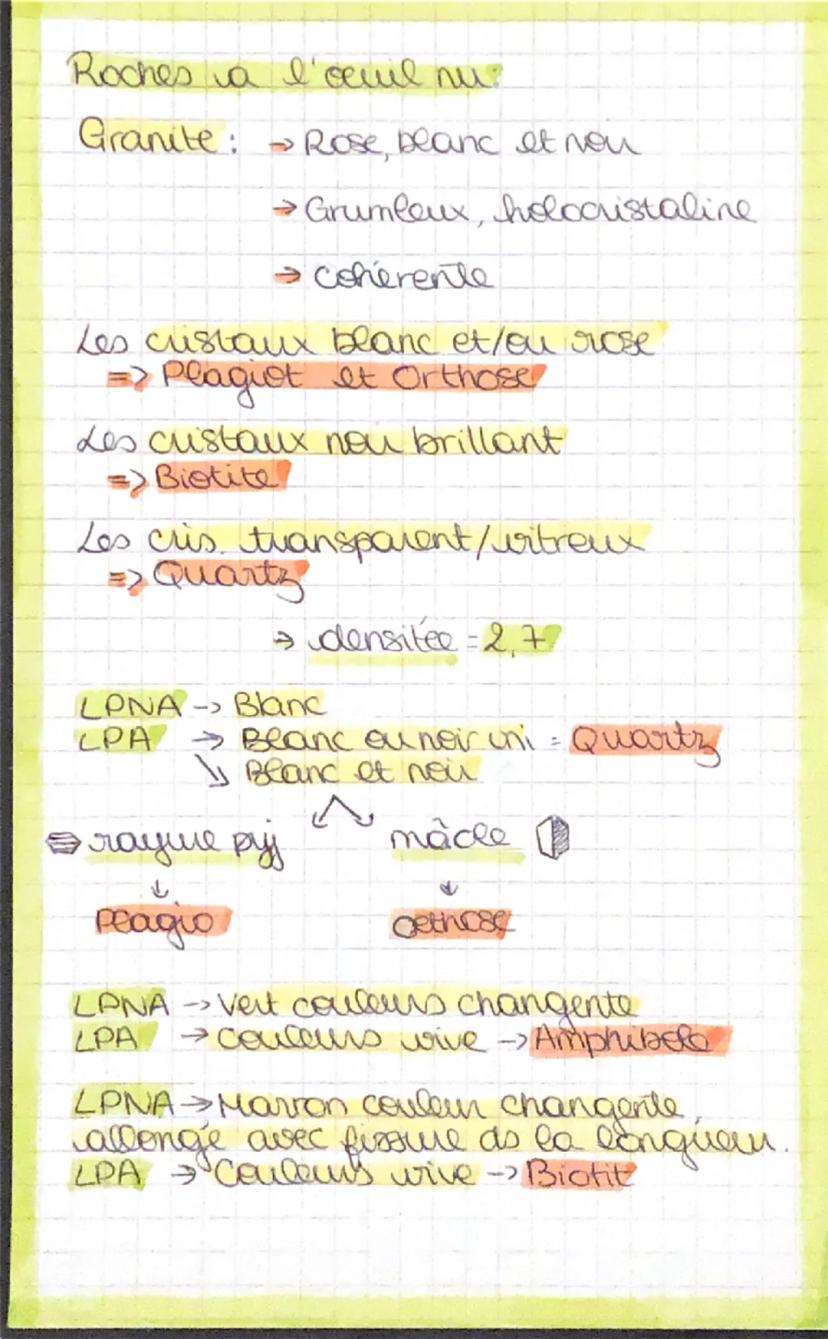 Roches à l'oeuil nu:
Granite : → Rose, blanc et noir
→ Grumleux, holocristaline
→ cohérente
Les cristaux blanc et/ou rose
=> Plagiot et Orthose
Les cristaux noir brillant
=> Biotite
Les cris. transparent/vitreux
=> Quartz
→ densitée = 2,7
LPNA -> Blanc
LPA → Blanc ou noir uni = Quartz
↘ Blanc et noir
↙ ↘
rayure pyj mâcle
↓ ↓
Plagio Orthose
LPNA -> Vert couleurs changente
LPA → couleurs vive -> Amphibole
LPNA → Marron couleur changente,
allongé avec fissure ds la longueur.
LPA → Couleurs vive -> Biotit